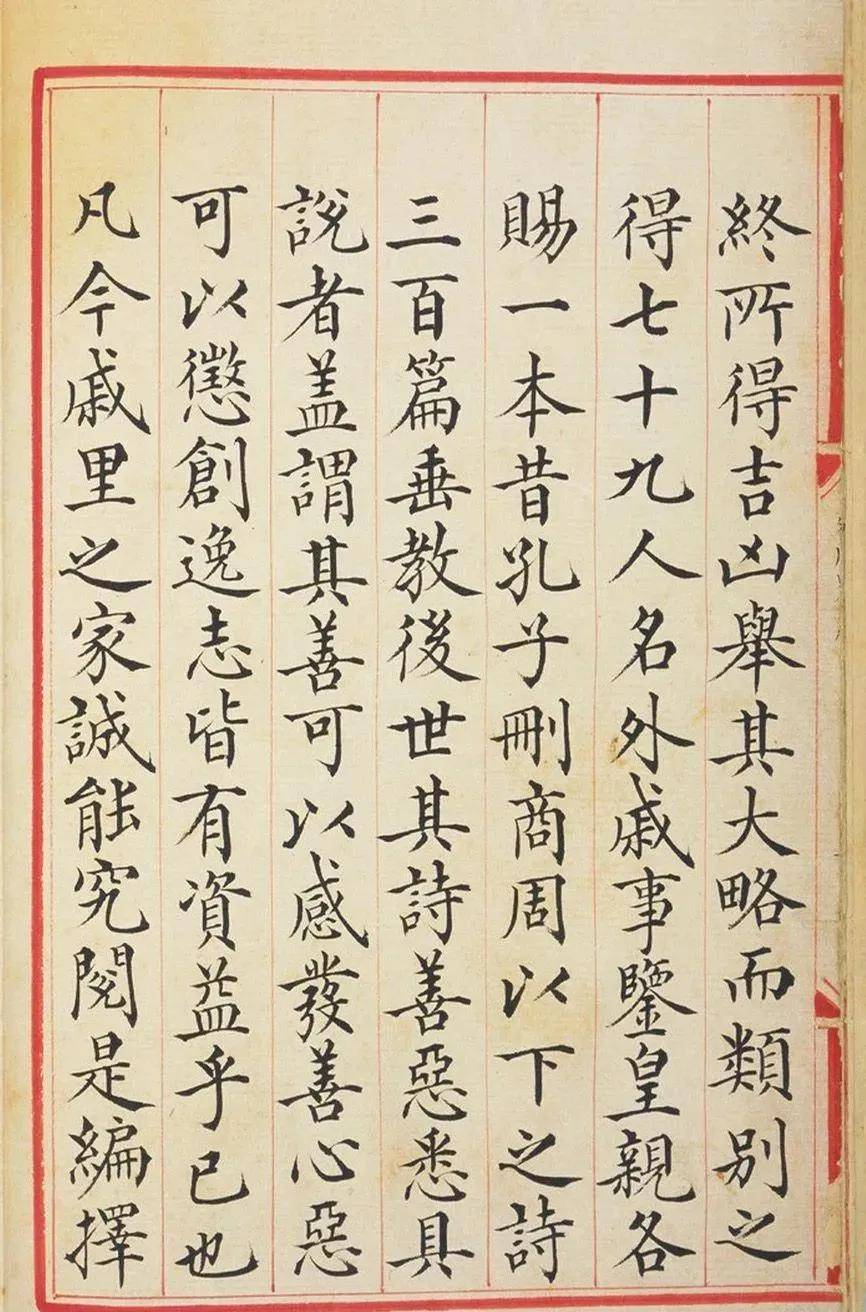 終所得吉凶舉其大略而類別之
得七十九人名外戚事鑒皇親各
賜一本昔孔子刪商周以下之詩
三百篇垂教後世其詩善惡悉具
說者盖謂其善可以感發善心惡
可以懲創逸志皆有資益乎已也
凡今戚里之家誠能究閱是編擇